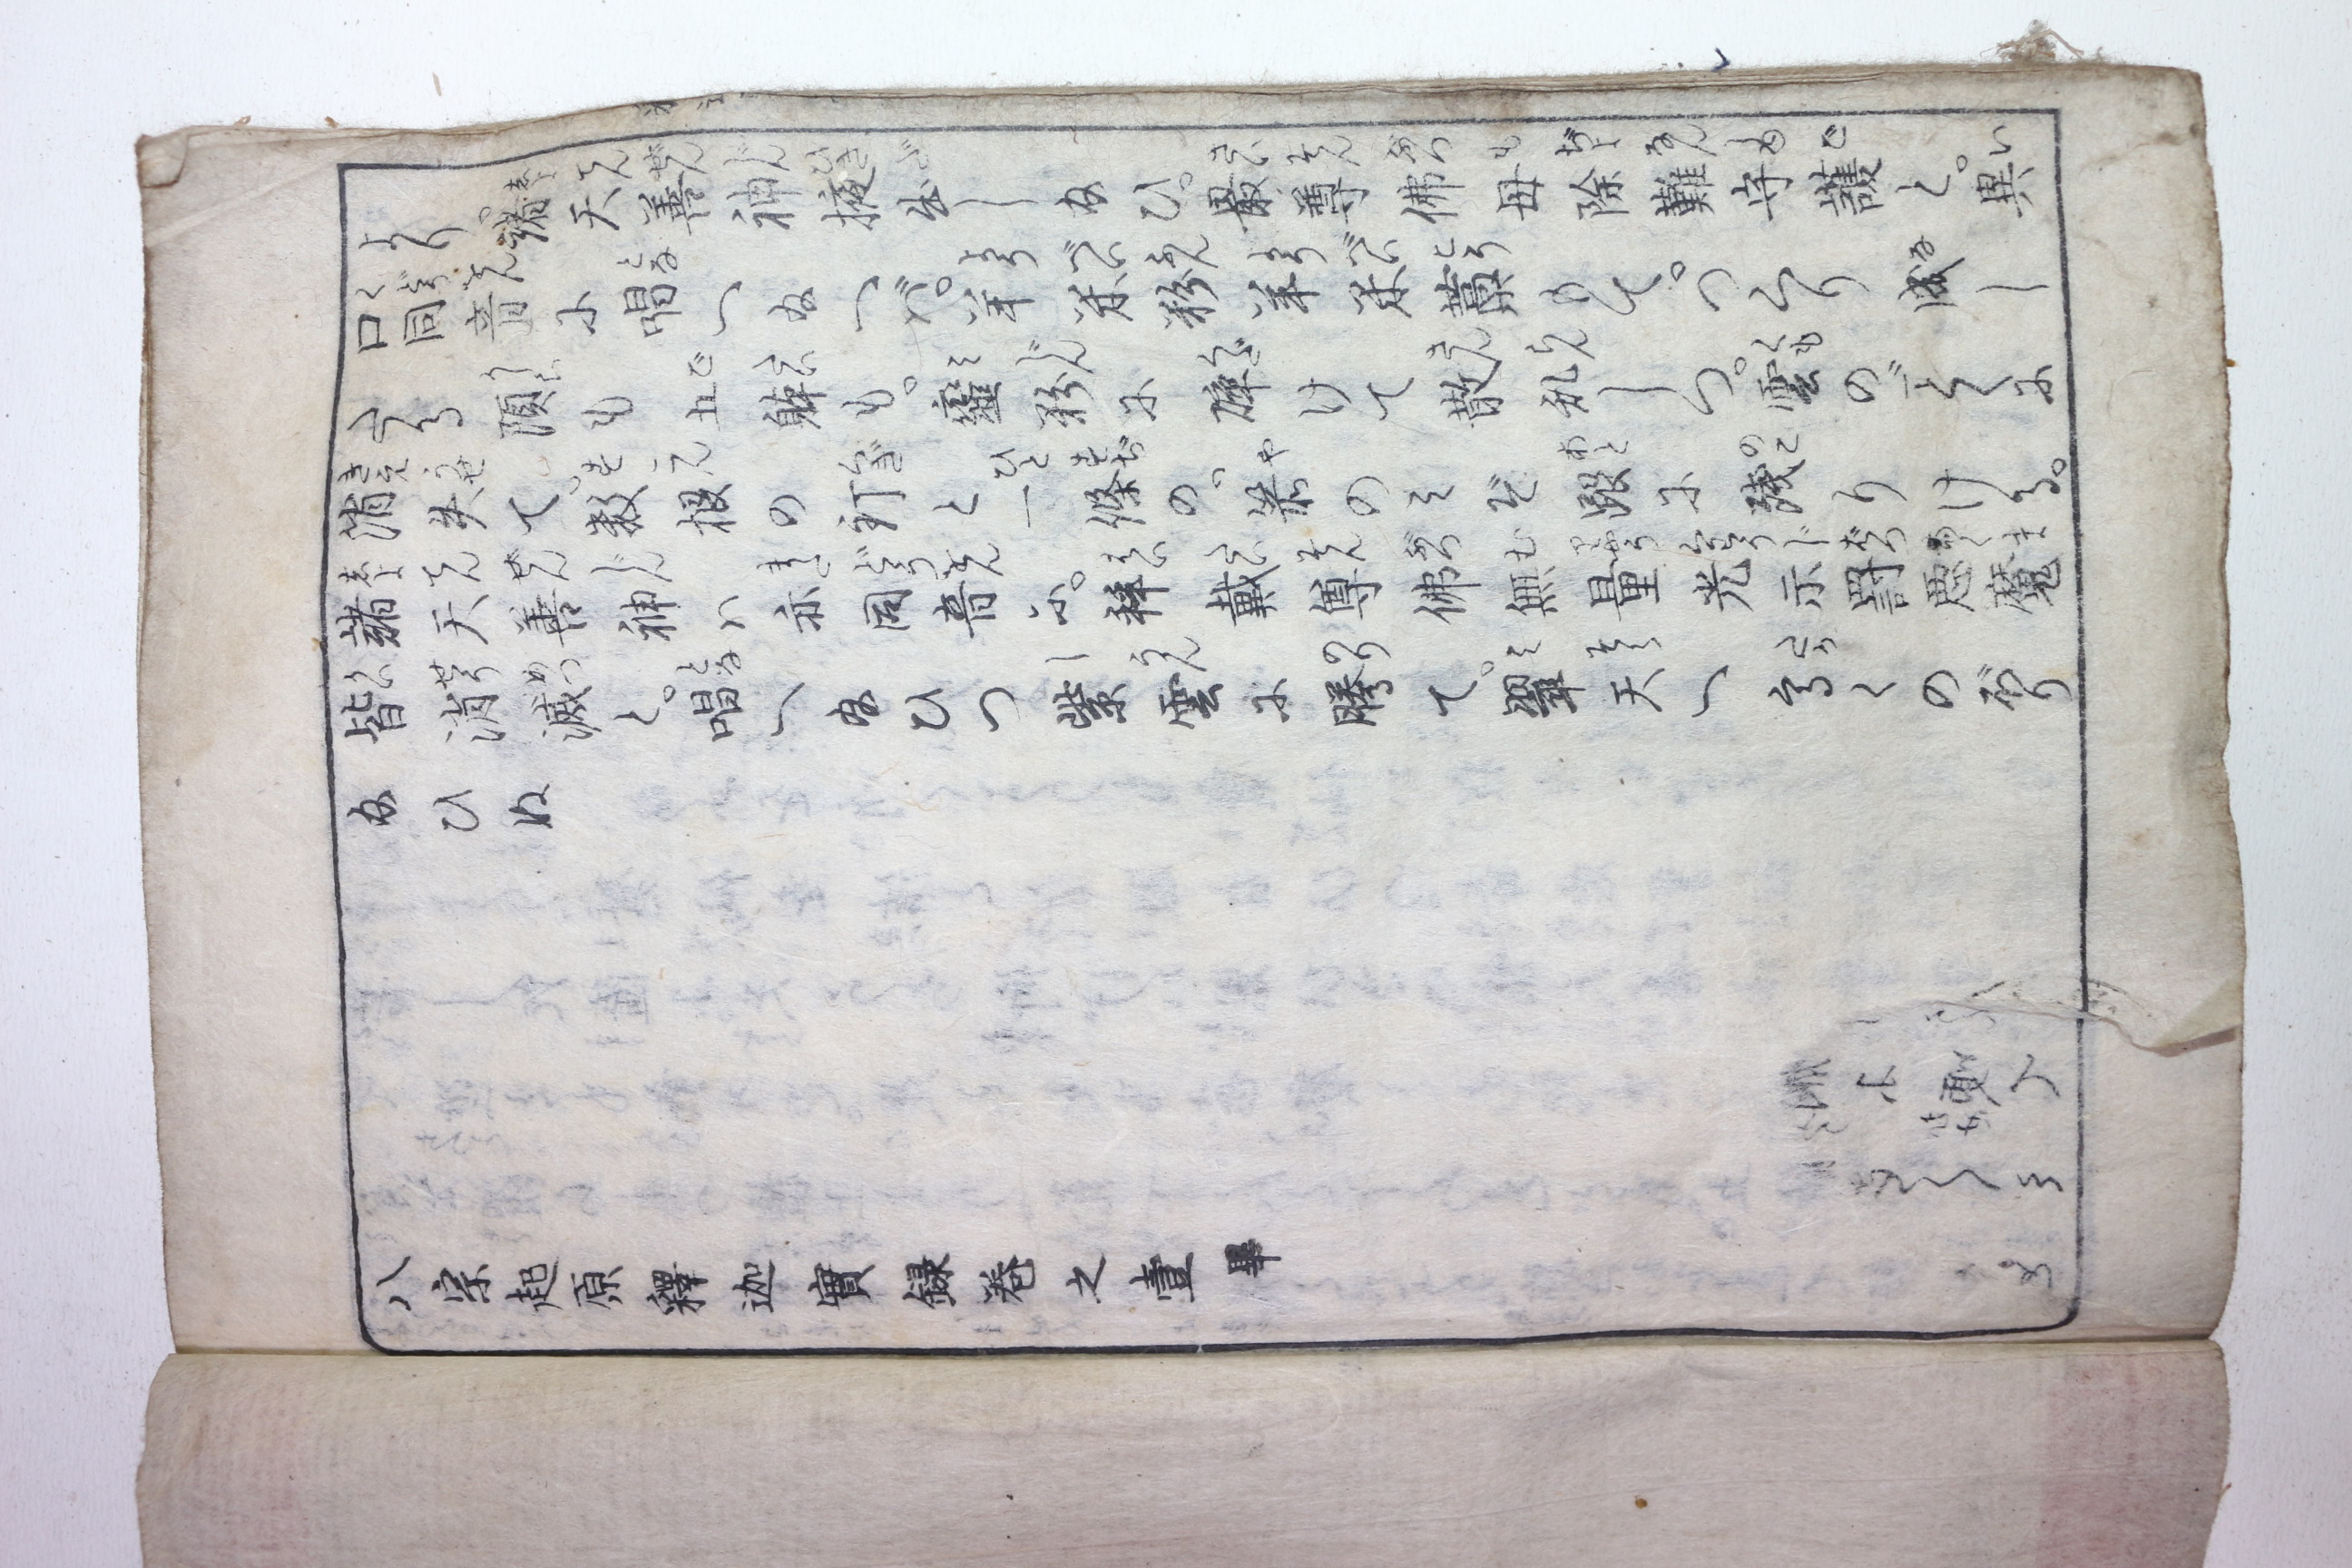 より。諸天善神掖出し給ひ。最尊佛母除難守護と。異
口同音に唱へ給へバ。羊米粉羊米藁もて。つくり成し
たる頭も五躰も。塵粉に碎けて散乱しつ。雲のごとくに
消失て。数根の釘と一條の。箭のミぞ跟に残りける。
諸天善神ハ亦同音に。拜戴尊佛無量光示罸悪魔
皆消滅と。唱へ給ひつ紫雲に騰て。翠天へ高くのぼり
給ひぬ
八宗起原釋迦實録巻之壹畢